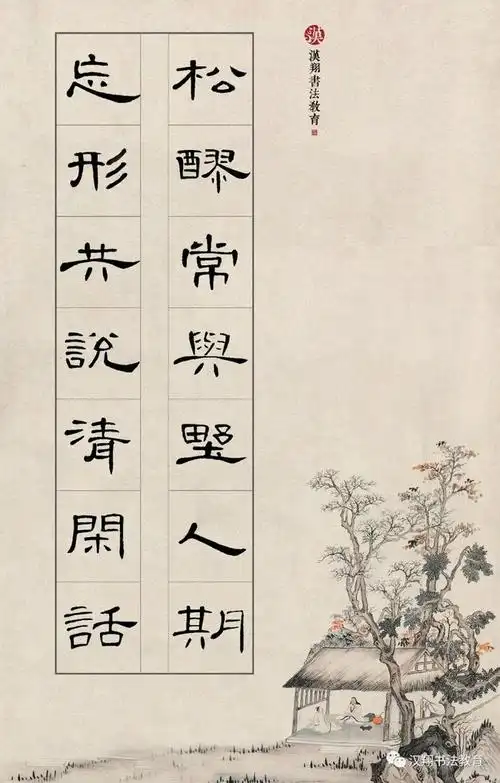 松醪常與野人期
忘形共說清閑話
漢翔書法教育
汉翔书法教育